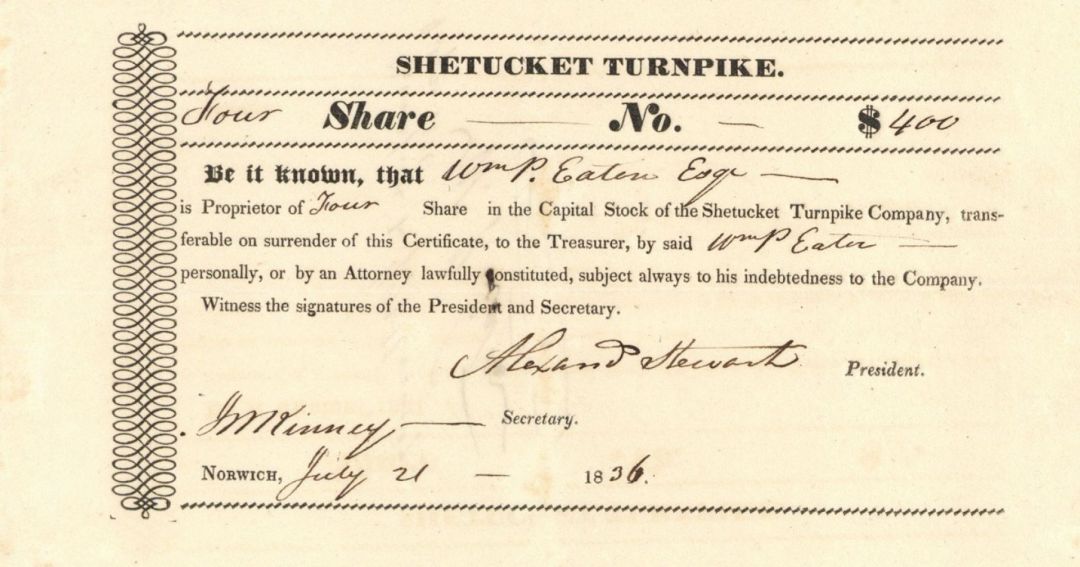 SHETUCKET TURNPIKE.
Four Share — No. — $ 400
Be it known, that Wm P. Eaton Esqr —
is Proprietor of Four Share in the Capital Stock of the Shetucket Turnpike Company, trans-
ferable on surrender of this Certificate, to the Treasurer, by said Wm P Eaton —
personally, or by an Attorney lawfully constituted, subject always to his indebtedness to the Company.
Witness the signatures of the President and Secretary.
Alexand Stewart President.
JMKinney — Secretary.
NORWICH, July 21 — 1836.